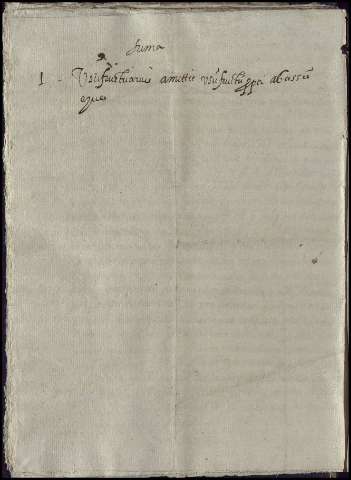 Suma
1 - Usufructuarius amittit usufructū ppr abusū
eius